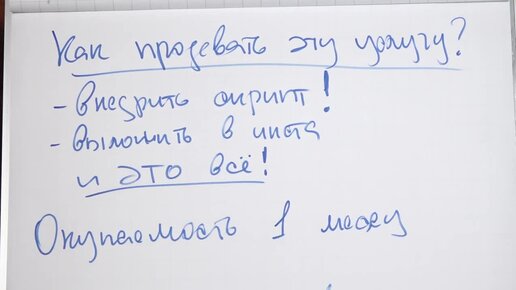 Как продавать эту услугу?
- внедрить скрипт!
- выложить в инста
и это всё!
Окупаемость 1 месяц